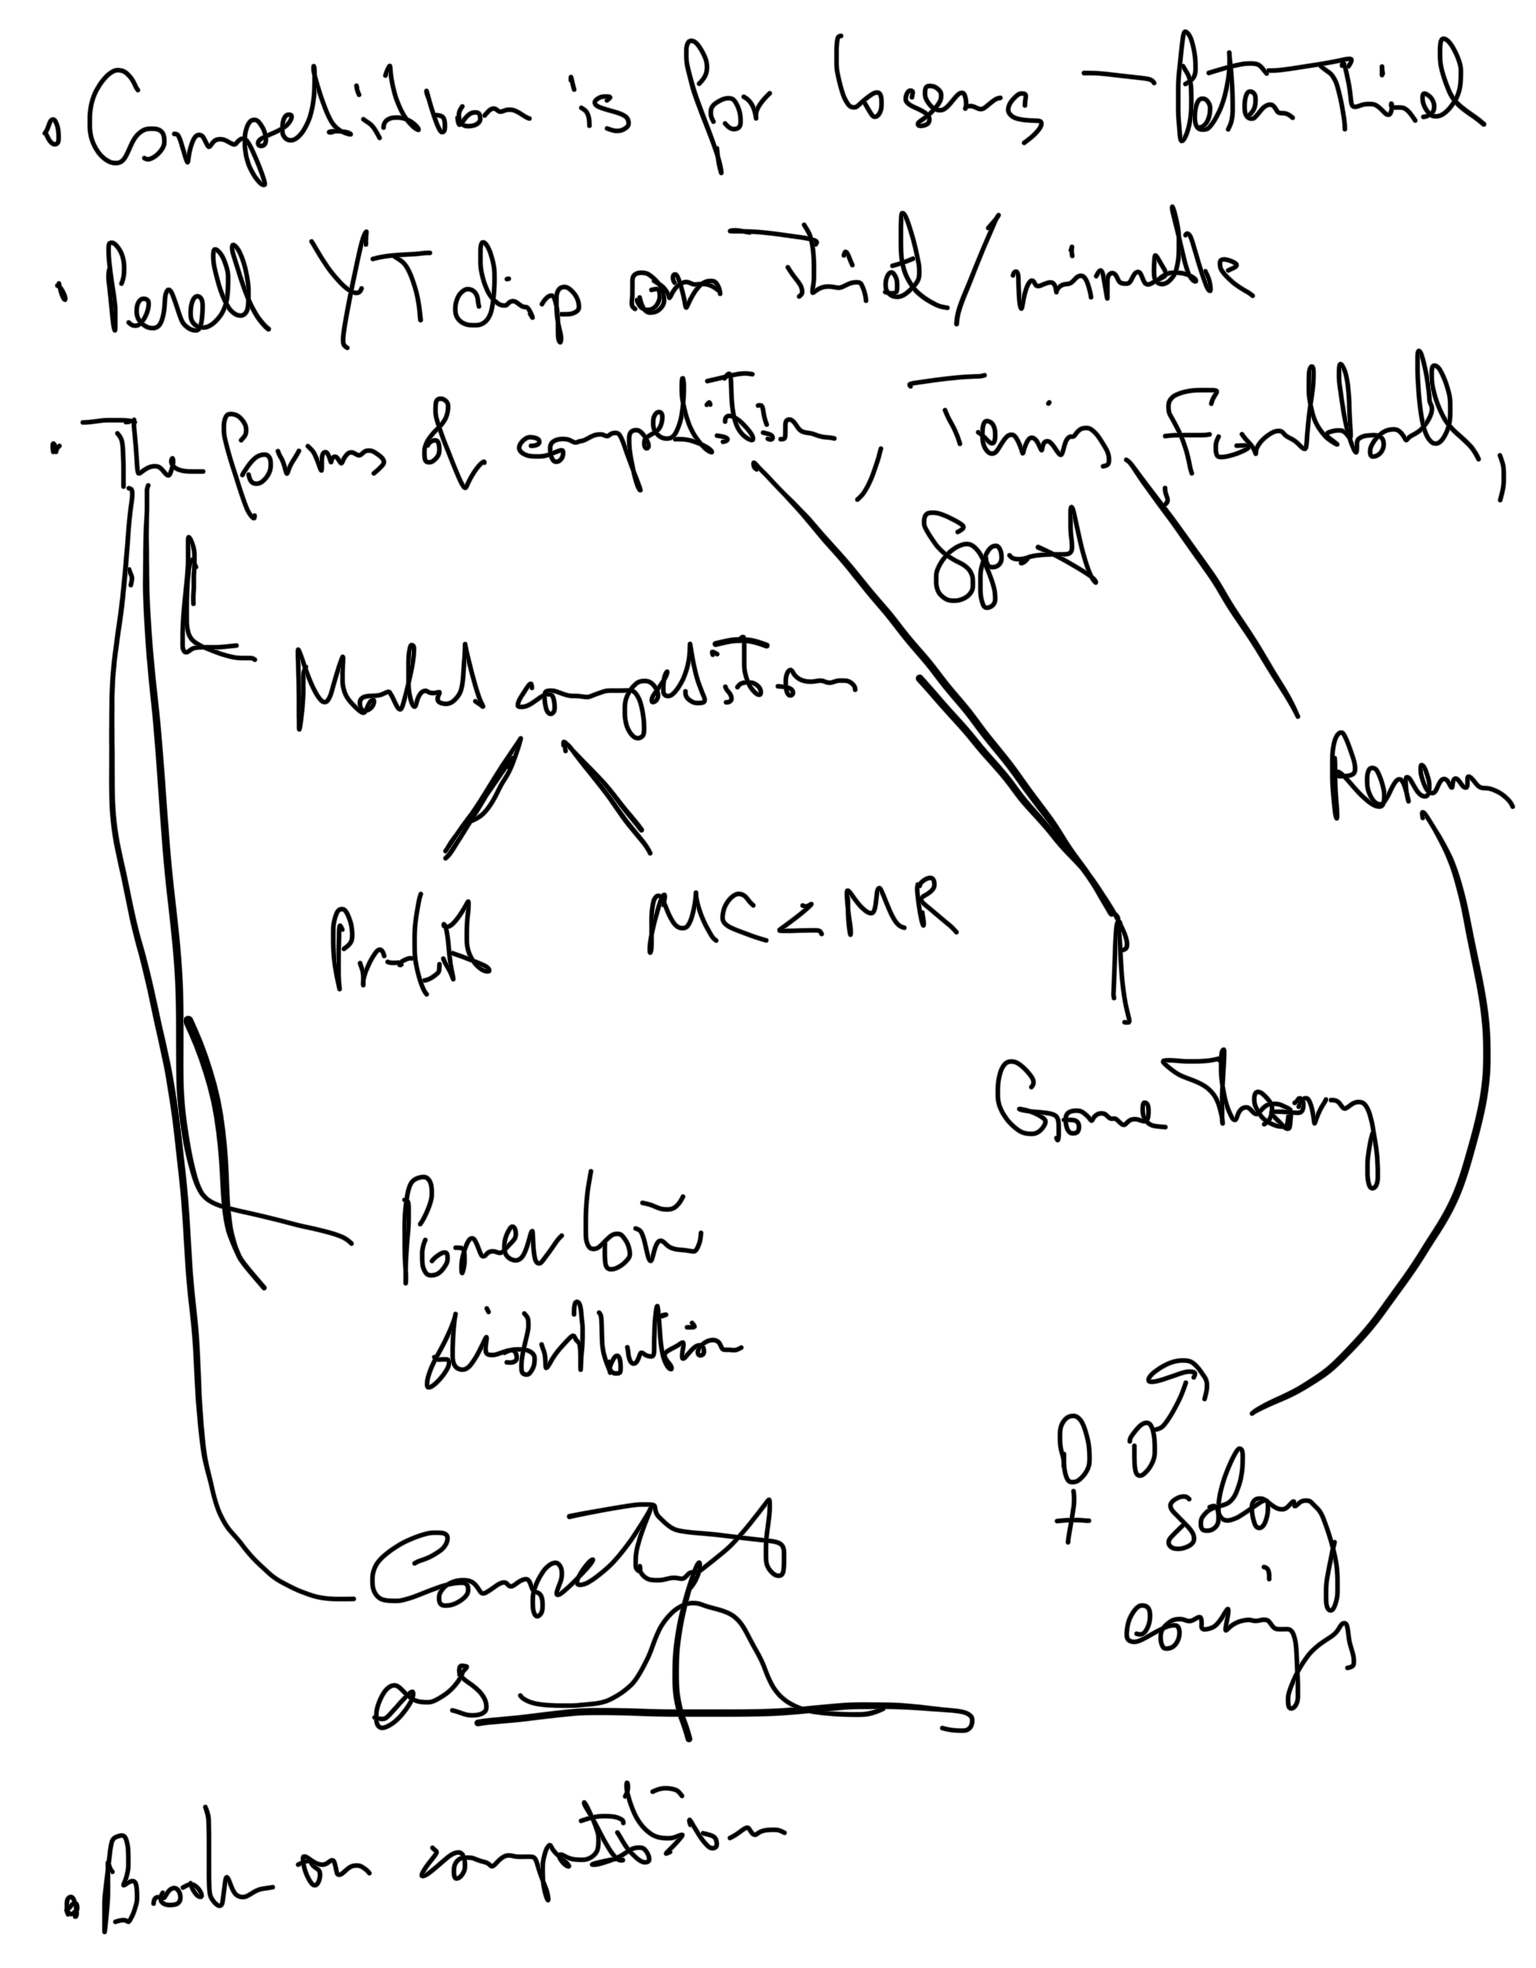 Competition is for losers - Peter Thiel
Perell YT clip on Thiel /
The forms of competition, Tennis, Football,
Sport
Market competition
Revenue
Profit MC < MR
Game Theory
Power law
distribution
salary
earnings
as
Book on competition